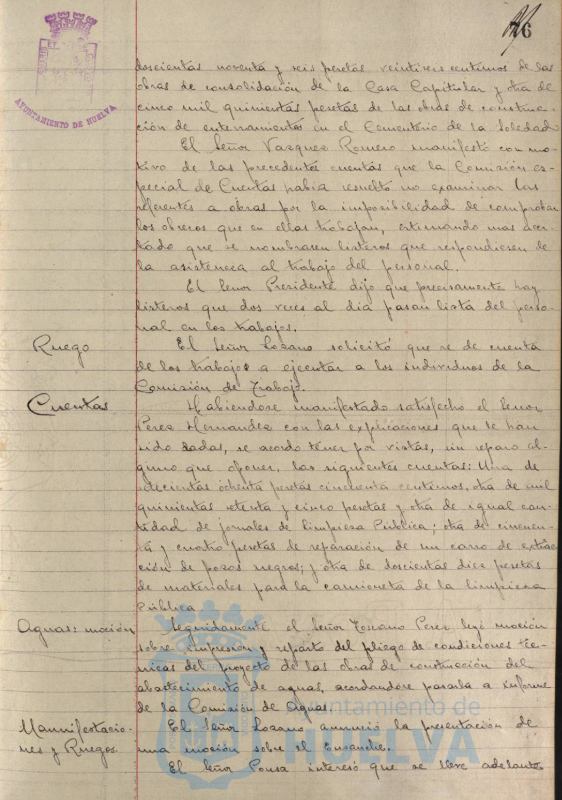 76
AYUNTAMIENTO DE HUELVA
doscientas noventa y seis pesetas veintiseis centimos de las
obras de consolidación de la Casa Capitular y otra de
cinco mil quinientas pesetas de las obras de construc-
ción de enterramientos en el Cementerio de la Soledad.
El Señor Vazquez Romero manifestó con mo-
tivo de las precedentes cuentas que la Comisión es-
pecial de Cuentas habia resuelto no examinar las
referentes a obras por la imposibilidad de comprobar
los obreros que en ellas trabajan, estimando mas acer-
tado que se nombrasen listeros que respondiesen de
la asistencia al trabajo del personal.
El Señor Presidente dijo que precisamente hay
listeros que dos veces al dia pasan lista del perso-
nal en los trabajos.
Ruego
El Señor Lozano solicitó que se de cuenta
de los trabajos a ejecutar a los individuos de la
Comisión de Trabajo.
Cuentas
Habiendose manifestado satisfecho el Señor
Perez Hernandez con las explicaciones que le han
sido dadas, se acordo tener por vistas, sin reparo al-
guno que oponer, las siguientes cuentas: Una de
setecientas ochenta pesetas cincuenta centimos, otra de mil
quinientas setenta y cinco pesetas y otra de igual can-
tidad de jornales de limpieza Pública; otra de cincuen-
ta y cuatro pesetas de reparación de un carro de extrac-
ción de pozos negros; y otra de doscientas diez pesetas
de materiales para la camioneta de la limpieza
Pública
Aguas: moción
Seguidamente el Señor Toscano Perez leyó moción
sobre impresión y reparto del pliego de condiciones téc-
nicas del proyecto de las obras de construcción del
abastecimiento de aguas, acordandose pasarla a informe
de la Comisión de Aguas.
Manifestacio-
nes y Ruegos.
El Señor Lozano anunció la presentación de
una moción sobre el Ensanche.
El Señor Ponsa interesó que se lleve adelante
Ayuntamiento de
HUELVA